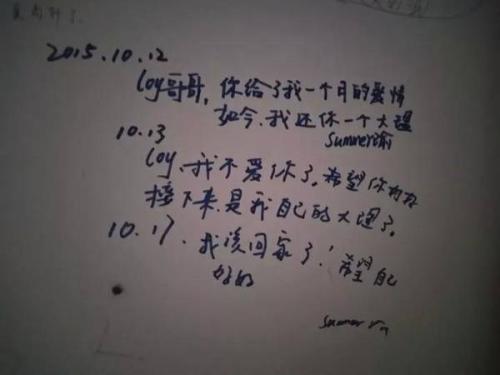 2015.10.12
Coy哥哥，你给了我一个月的爱情
如今，我还你一个大理
Summer瑜
10.13
Coy，我不爱你了，希望你好好
接下来，是我自己的大理了。
10.17，我该回家了！希望自己
好好
Summer